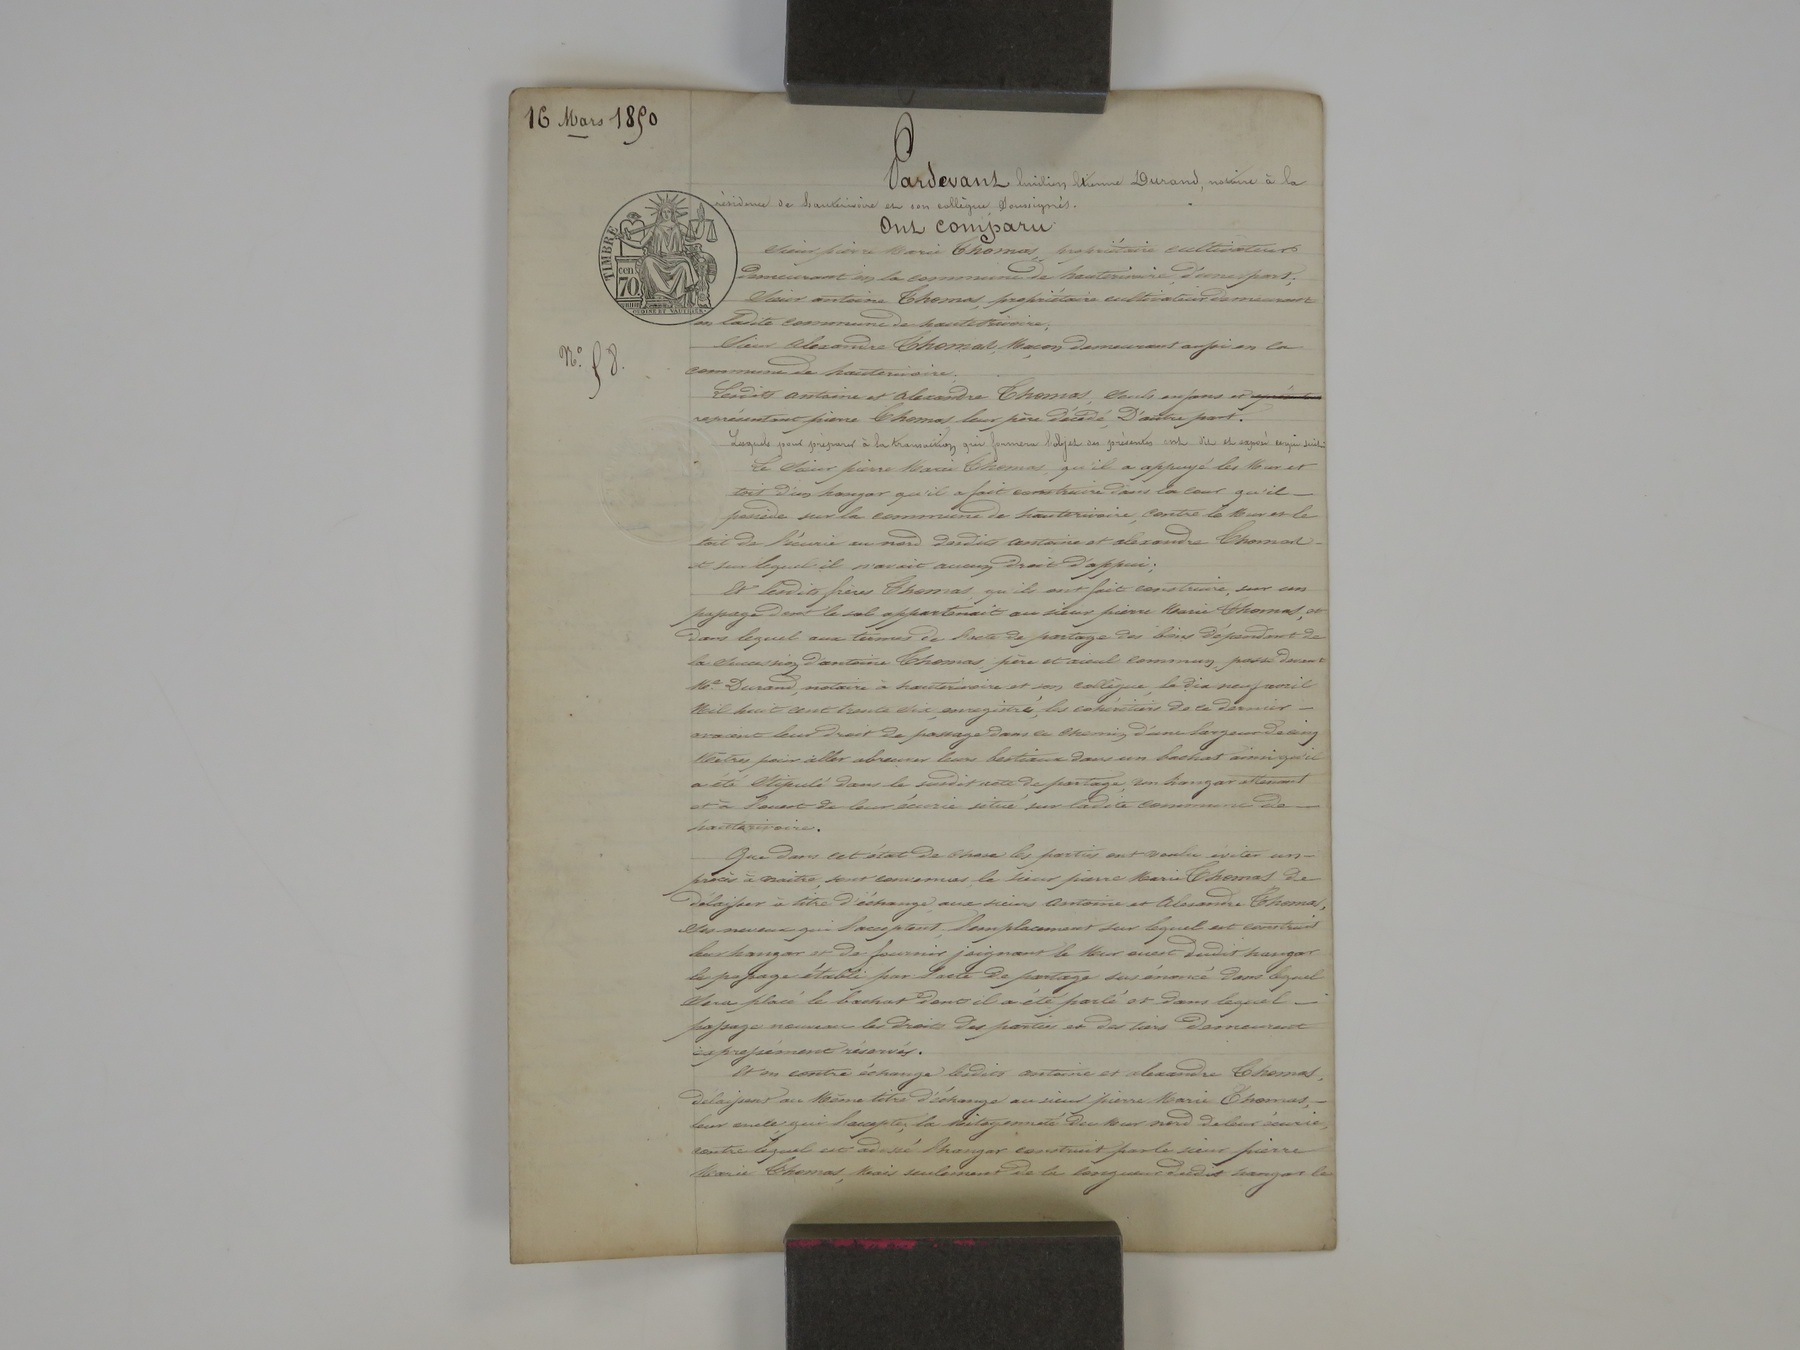 16 Mars 1850
Pardevant Etienne Durand, notaire à la
résidence de hauterivoire et son collègue soussignés.
Ont comparu
TIMBRE
cen
70
Sieur pierre Marie Thomas, propriétaire cultivateur
demeurant en la commune de hauterivoire, d'une part,
Sieur antoine Thomas, propriétaire cultivateur demeurant
en ladite commune de hauterivoire,
N.o 58.
Sieur alexandre Thomas, Maçon demeurant aussi en la
commune de hauterivoire.
Lesdits antoine et alexandre Thomas, seuls enfans et
représentant pierre Thomas leur père décédé, D'autre part.
Lesquels pour préparer à la transaction qui formera l'objet des présentes ont dit et exposé ce qui suit:
Le Sieur pierre Marie Thomas, qu'il a appuyé les Mur et
toit d'un hangar qu'il a fait construire dans la cour qu'il
possède sur la commune de hauterivoire, contre le Mur et le
toit de l'écurie au nord desdits antoine et alexandre Thomas
et sur lequel il n'avait aucun droit d'appui;
Et lesdits frères Thomas, qu'ils ont fait construire, sur un
passage dont le sol appartenait au sieur pierre Marie Thomas, et
dans lequel aux termes de l'acte de partage des biens dépendant de
la succession d'antoine Thomas père et aïeul commun, passé devant
Me. Durand, notaire à hauterivoire et son collègue, le dix neuf avril
Mil huit cent trente six, enregistré, les cohéritiers de ce dernier
avaient leur droit de passage dans ce chemin d'une largeur de cinq
Mètres pour aller abreuver leurs bestiaux dans un bachat ainsi qu'il
a été Stipulé dans le susdit acte de partage, un hangar attenant
et à l'ouest de leur écurie situé sur ladite commune de
hauterivoire.
Que dans cet état de chose les parties ont voulu éviter un
procès à naitre, sont convenues, le sieur pierre Marie Thomas de
délaisser à titre d'échange aux sieurs antoine et alexandre Thomas,
Ses neveux qui l'acceptent, l'emplacement sur lequel est construit
leur hangar et de fournir joignant le Mur ouest dudit hangar
le passage établi par l'acte de partage sus énoncé dans lequel
Sera placé le bachat dont il a été parlé et dans lequel
passage nouveau les droits des parties et des tiers Demeurent
expressément réservés.
Et en contre échange lesdits antoine et alexandre Thomas,
délaissent au Même titre d'échange au sieur pierre Marie Thomas,
leur oncle, qui l'accepte, la Mitoyenneté du Mur nord de leur écurie,
contre lequel est adossé l'hangar construit par le sieur pierre
Marie Thomas, Mais seulement de la longueur dudit hangar le